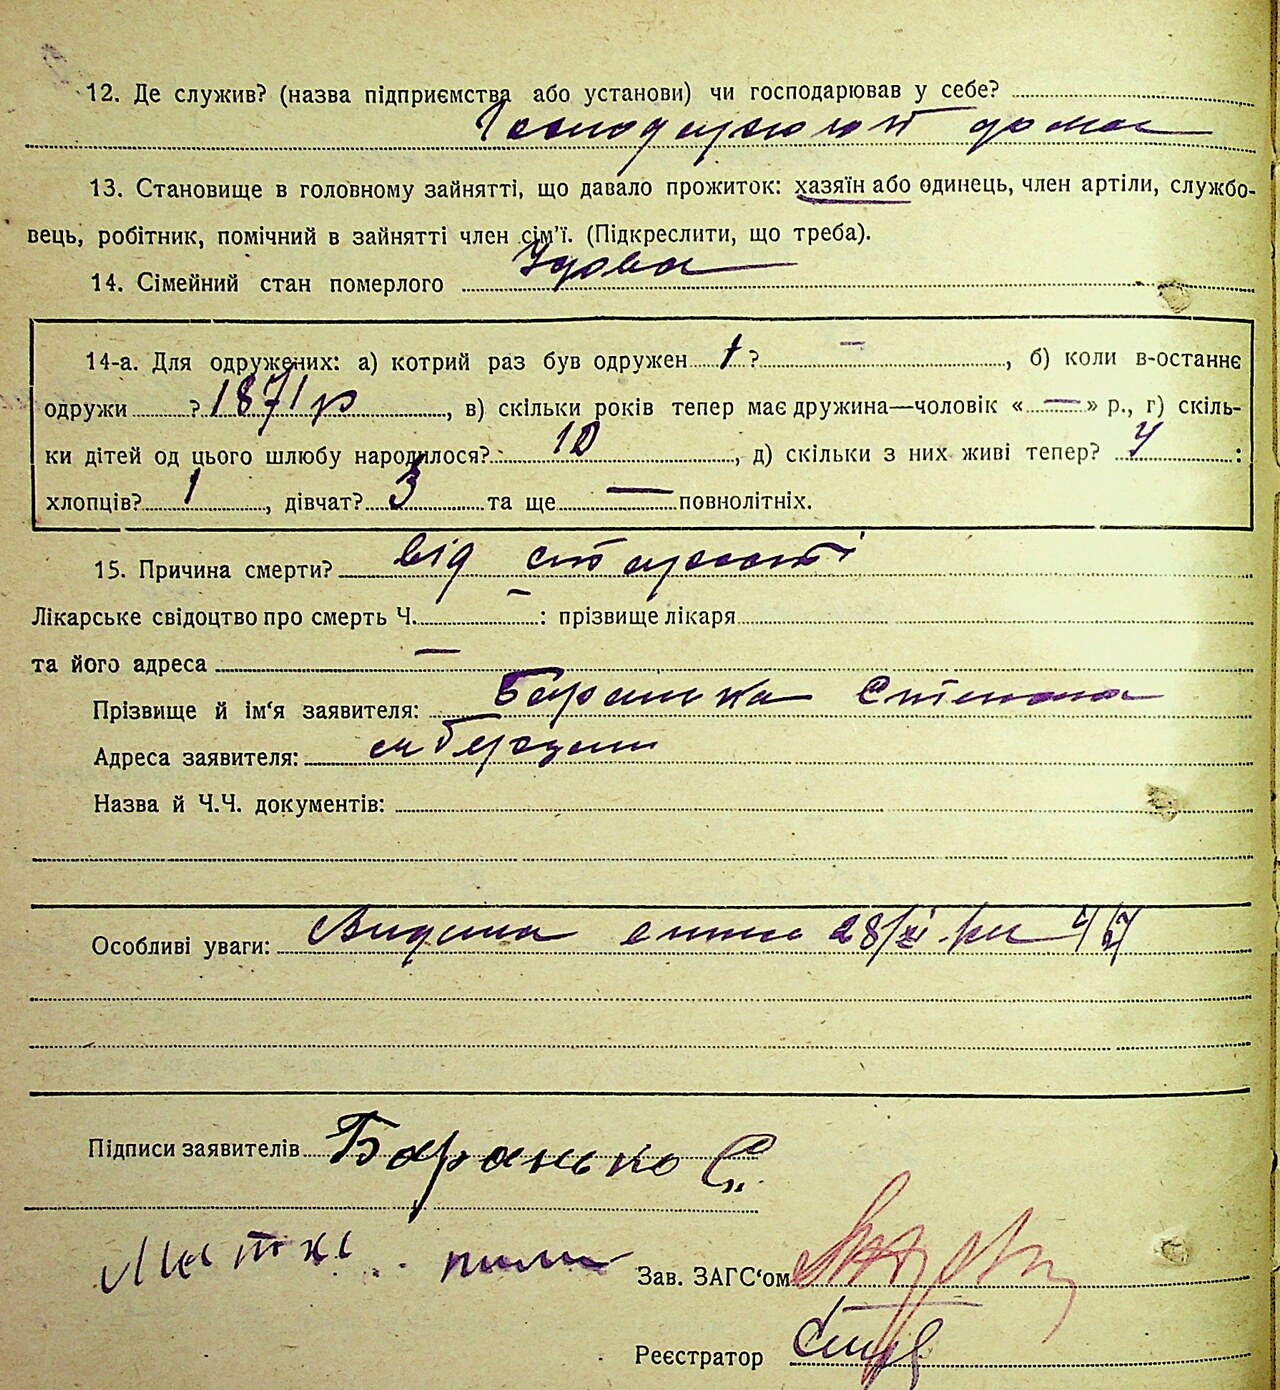 12. Де служив? (назва підприємства або установи) чи господарював у себе?
Господарювала дома
13. Становище в головному зайнятті, що давало прожиток: хазяїн або одинець, член артіли, службо-
вець, робітник, помічний в зайнятті член сім'ї. (Підкреслити, що треба).
14. Сімейний стан померлого Удова
14-а. Для одружених: а) котрий раз був одружен 1 ? —, б) коли в-останнє
одружи ? 1871 р, в) скільки років тепер має дружина—чоловік « — » р., г) скіль-
ки дітей од цього шлюбу народилося? 10, д) скільки з них живі тепер? 4 :
хлопців? 1, дівчат? 3 та ще — повнолітніх.
15. Причина смерти? від старости
Лікарське свідоцтво про смерть Ч. — : прізвище лікаря
та його адреса —
Прізвище й ім'я заявителя: Баранька Степана
Адреса заявителя: м
Назва й Ч.Ч. документів:
Особливі уваги: Видана 28/XI
Підписи заявителів Баранько С.
Зав. ЗАГС'ом
Реєстратор